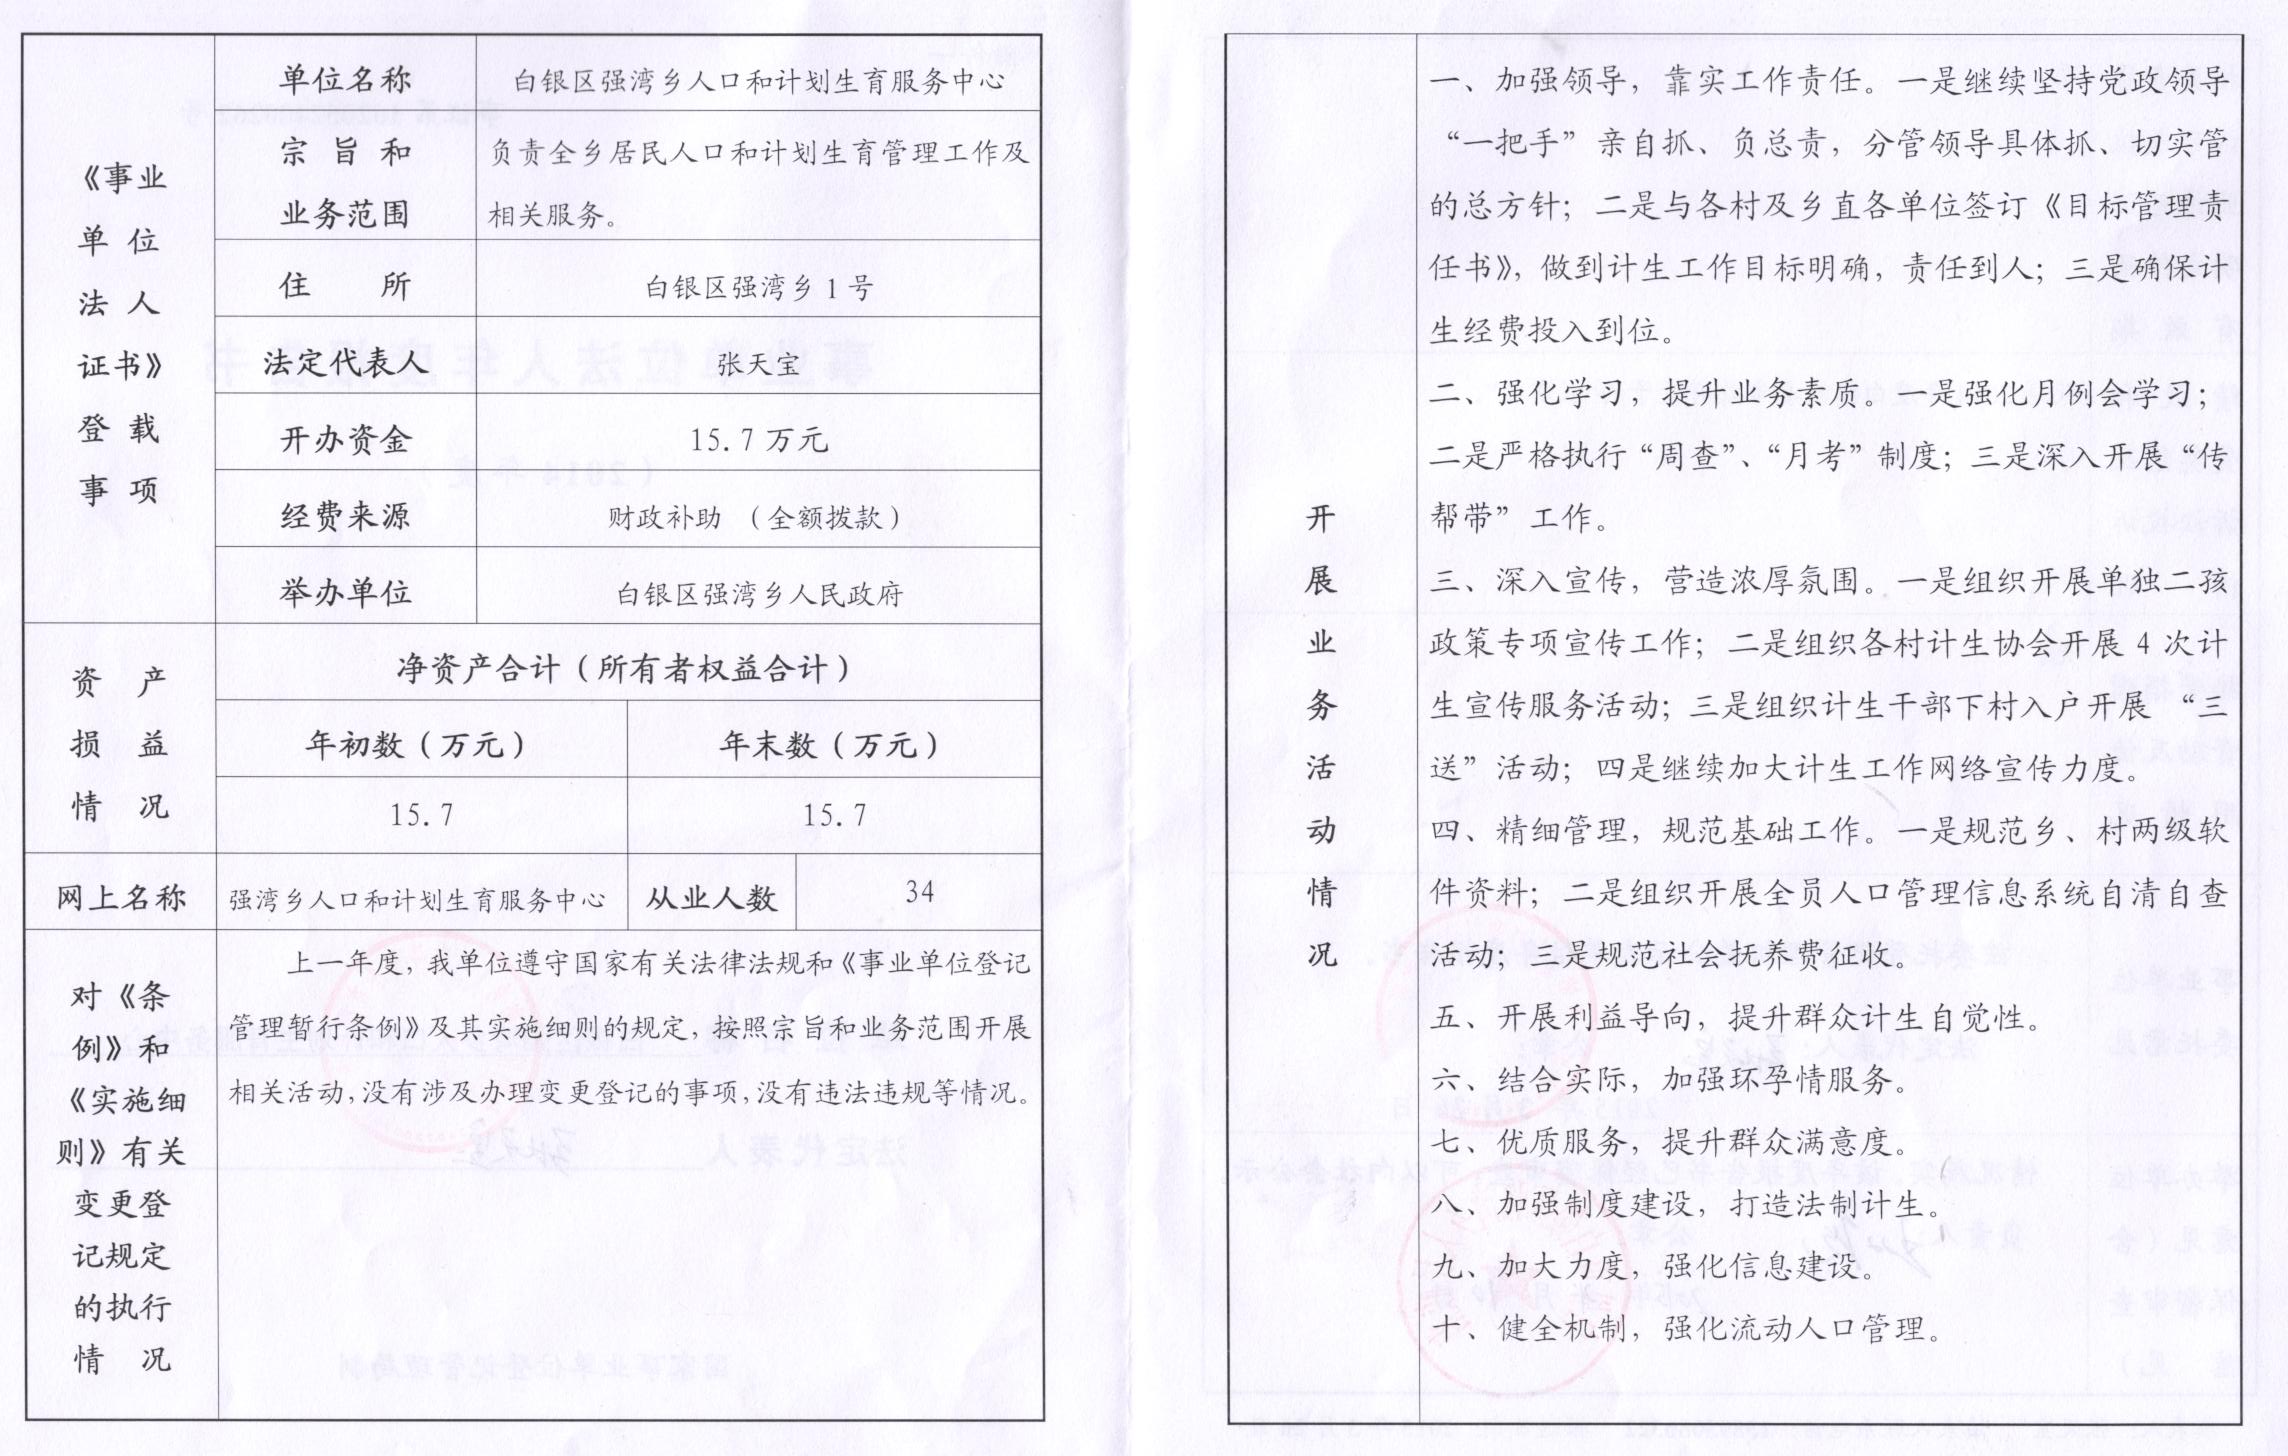 《事业
单 位
法 人
证书》
登 载
事 项
单位名称
白银区强湾乡人口和计划生育服务中心
宗 旨 和
业务范围
负责全乡居民人口和计划生育管理工作及
相关服务。
住 所
白银区强湾乡 1 号
法定代表人
张天宝
开办资金
15.7 万元
经费来源
财政补助 （全额拨款）
举办单位
白银区强湾乡人民政府
资 产
损 益
情 况
净资产合计（所有者权益合计）
年初数（万元）
年末数（万元）
15.7
15.7
网上名称
强湾乡人口和计划生育服务中心
从业人数
34
对《条
例》和
《实施细
则》有关
变更登
记规定
的执行
情 况
上一年度，我单位遵守国家有关法律法规和《事业单位登记
管理暂行条例》及其实施细则的规定，按照宗旨和业务范围开展
相关活动，没有涉及办理变更登记的事项，没有违法违规等情况。
开
展
业
务
活
动
情
况
一、加强领导，靠实工作责任。一是继续坚持党政领导
“一把手”亲自抓、负总责，分管领导具体抓、切实管
的总方针；二是与各村及乡直各单位签订《目标管理责
任书》，做到计生工作目标明确，责任到人；三是确保计
生经费投入到位。
二、强化学习，提升业务素质。一是强化月例会学习；
二是严格执行“周查”、“月考”制度；三是深入开展“传
帮带”工作。
三、深入宣传，营造浓厚氛围。一是组织开展单独二孩
政策专项宣传工作；二是组织各村计生协会开展 4 次计
生宣传服务活动；三是组织计生干部下村入户开展 “三
送”活动；四是继续加大计生工作网络宣传力度。
四、精细管理，规范基础工作。一是规范乡、村两级软
件资料；二是组织开展全员人口管理信息系统自清自查
活动；三是规范社会抚养费征收。
五、开展利益导向，提升群众计生自觉性。
六、结合实际，加强环孕情服务。
七、优质服务，提升群众满意度。
八、加强制度建设，打造法制计生。
九、加大力度，强化信息建设。
十、健全机制，强化流动人口管理。